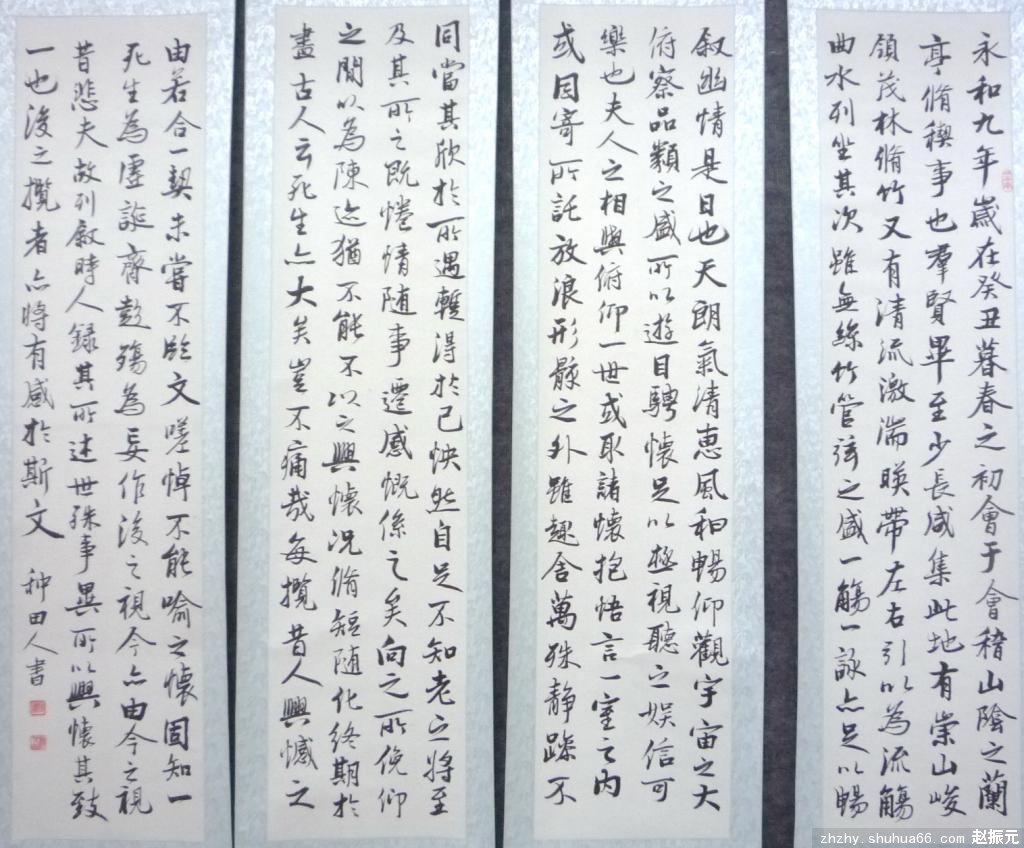 永和九年歲在癸丑暮春之初會于會稽山陰之蘭
亭脩稧事也羣賢畢至少長咸集此地有崇山峻
領茂林脩竹又有清流激湍暎帶左右引以為流觴
曲水列坐其次雖無絲竹管弦之盛一觴一詠亦足以暢
叙幽情是日也天朗氣清惠風和暢仰觀宇宙之大
俯察品類之盛所以遊目騁懷足以極視聽之娛信可
樂也夫人之相與俯仰一世或取諸懷抱悟言一室之內
或因寄所託放浪形骸之外雖趣舍萬殊靜躁不
同當其欣於所遇暫得於己怏然自足不知老之將至
及其所之既惓情隨事遷感慨係之矣向之所俛仰
之閒以為陳迹猶不能不以之興懷況脩短隨化終期於
盡古人云死生亦大矣豈不痛哉每攬昔人興憾之
由若合一契未嘗不臨文嗟悼不能喻之懷固知一
死生為虛誕齊彭殤為妄作後之視今亦由今之視
昔悲夫故列敘時人錄其所述世殊事異所以興懷其致
一也後之攬者亦將有感於斯文 种田人書
zhzhy.shuhua66.com 赵振元